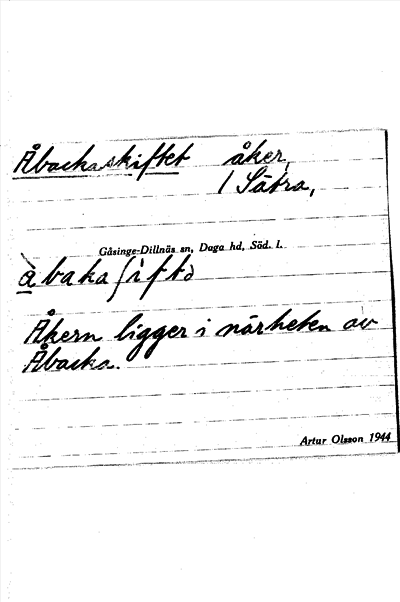 Åbackaskiftet åker,
/ Sätra,
Gåsinge-Dillnäs sn, Daga hd, Söd. l.
Åkern ligger i närheten av
Åbacka.
Artur Olsson 1944